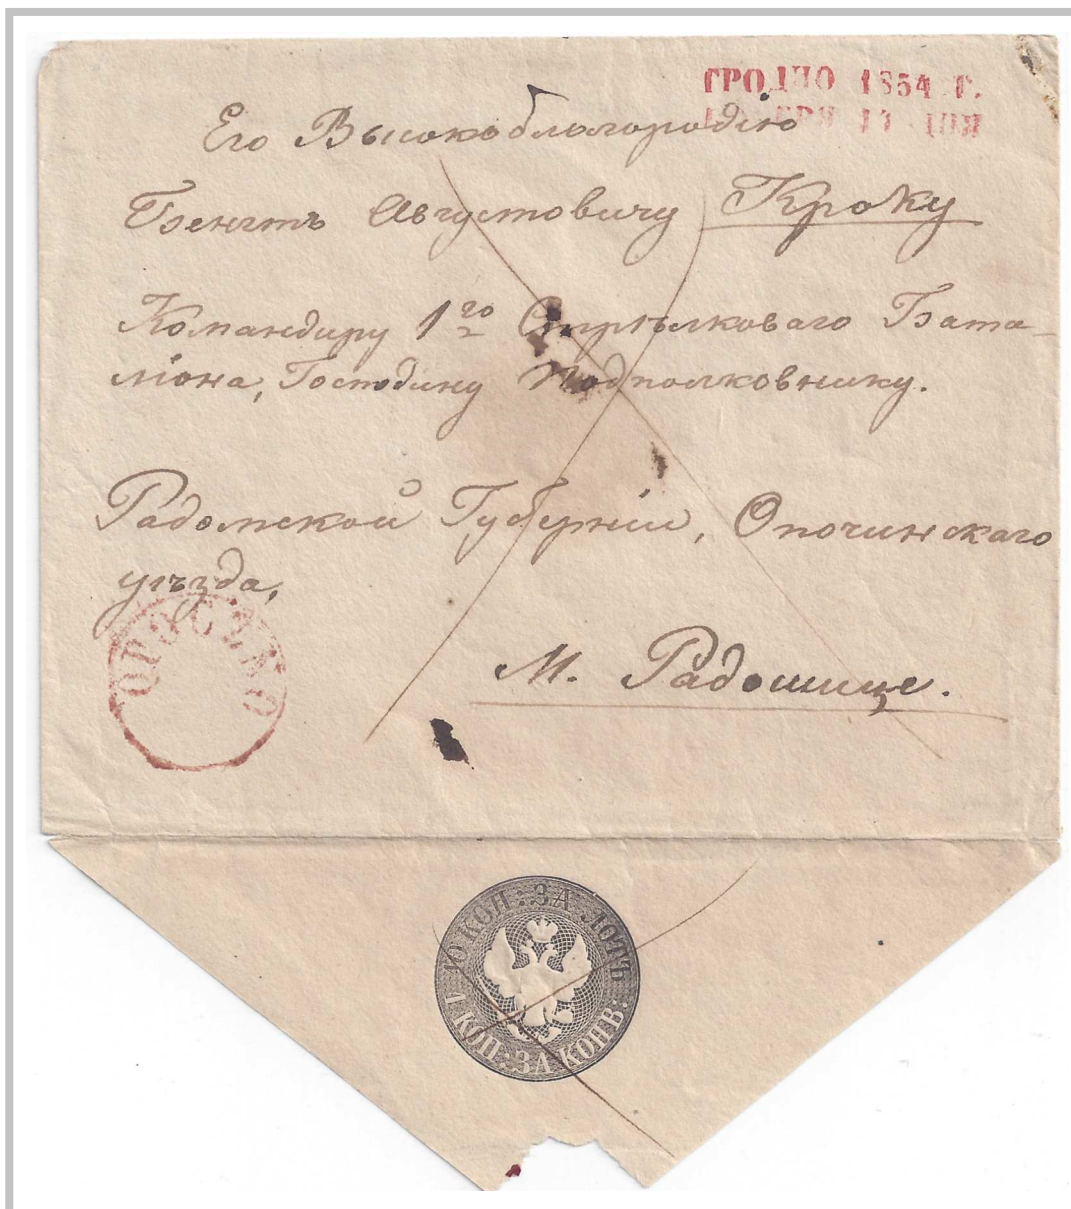 ГРОДНО 1854 Г.
Его Высокоблагородію
Бенгтъ Августовичу Кроку
Командиру 1го Стрѣлковаго Бата-
ліона, Господину Подполковнику.
Радомской Губерніи, Опочинскаго
уѣзда,
М. Радошице.
10 КОП: ЗА ЛОТЪ
1 КОП: ЗА КОНВ: